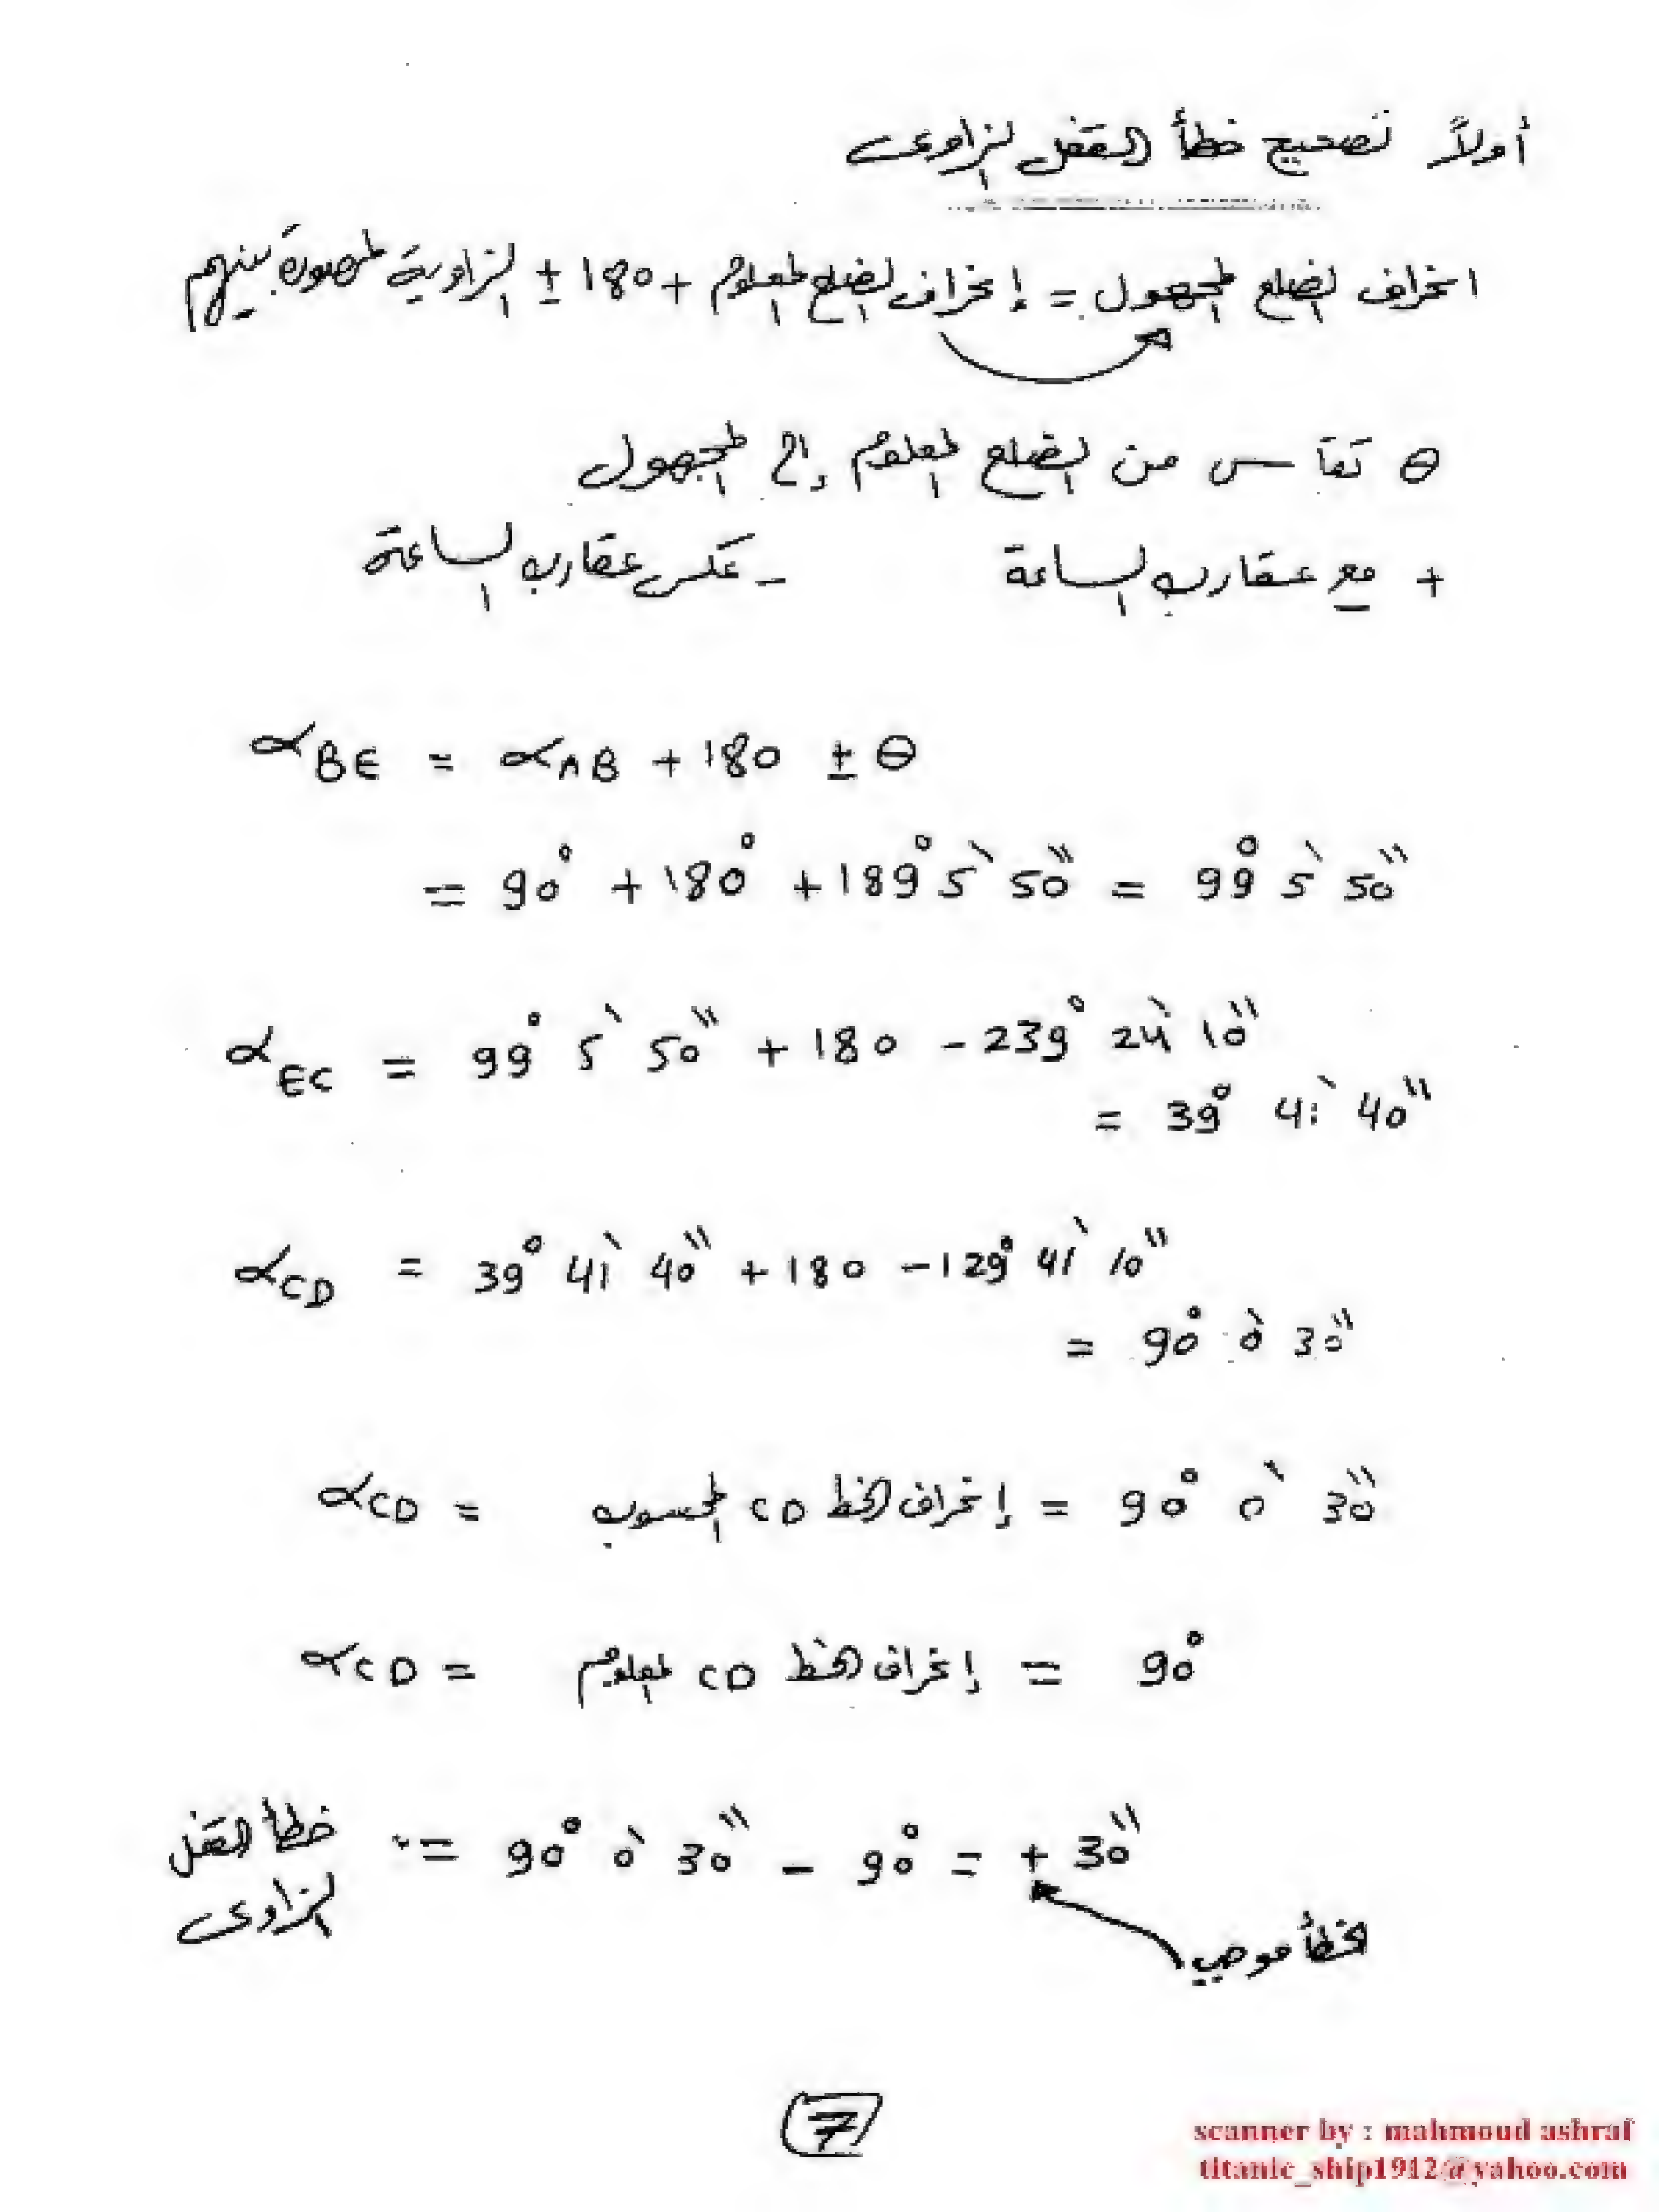 أولاً تصحيح خطأ القفل الزاوى
انحراف الضلع المجهول = إنحراف الضلع المعلوم + 180 ± الزاوية المحصورة بينهم
θ تقاس من الضلع المعلوم إلى المجهول
+ مع عقارب الساعة - عكس عقارب الساعة
αBE = αAB + 180 ± θ
= 90° + 180° + 189° 5' 50" = 99° 5' 50"
αEC = 99° 5' 50" + 180 - 239° 24' 10"
= 39° 41' 40"
αCD = 39° 41' 40" + 180 - 129° 41' 10"
= 90° 0' 30"
αCD = إنحراف الخط CD المحسوب = 90° 0' 30"
αCD = إنحراف الخط CD المعلوم = 90°
خطأ القفل الزاوى = 90° 0' 30" - 90° = + 30"
الخطأ موجب
7
scanner by : mahmoud ashraf
titanic_ship1912@yahoo.com